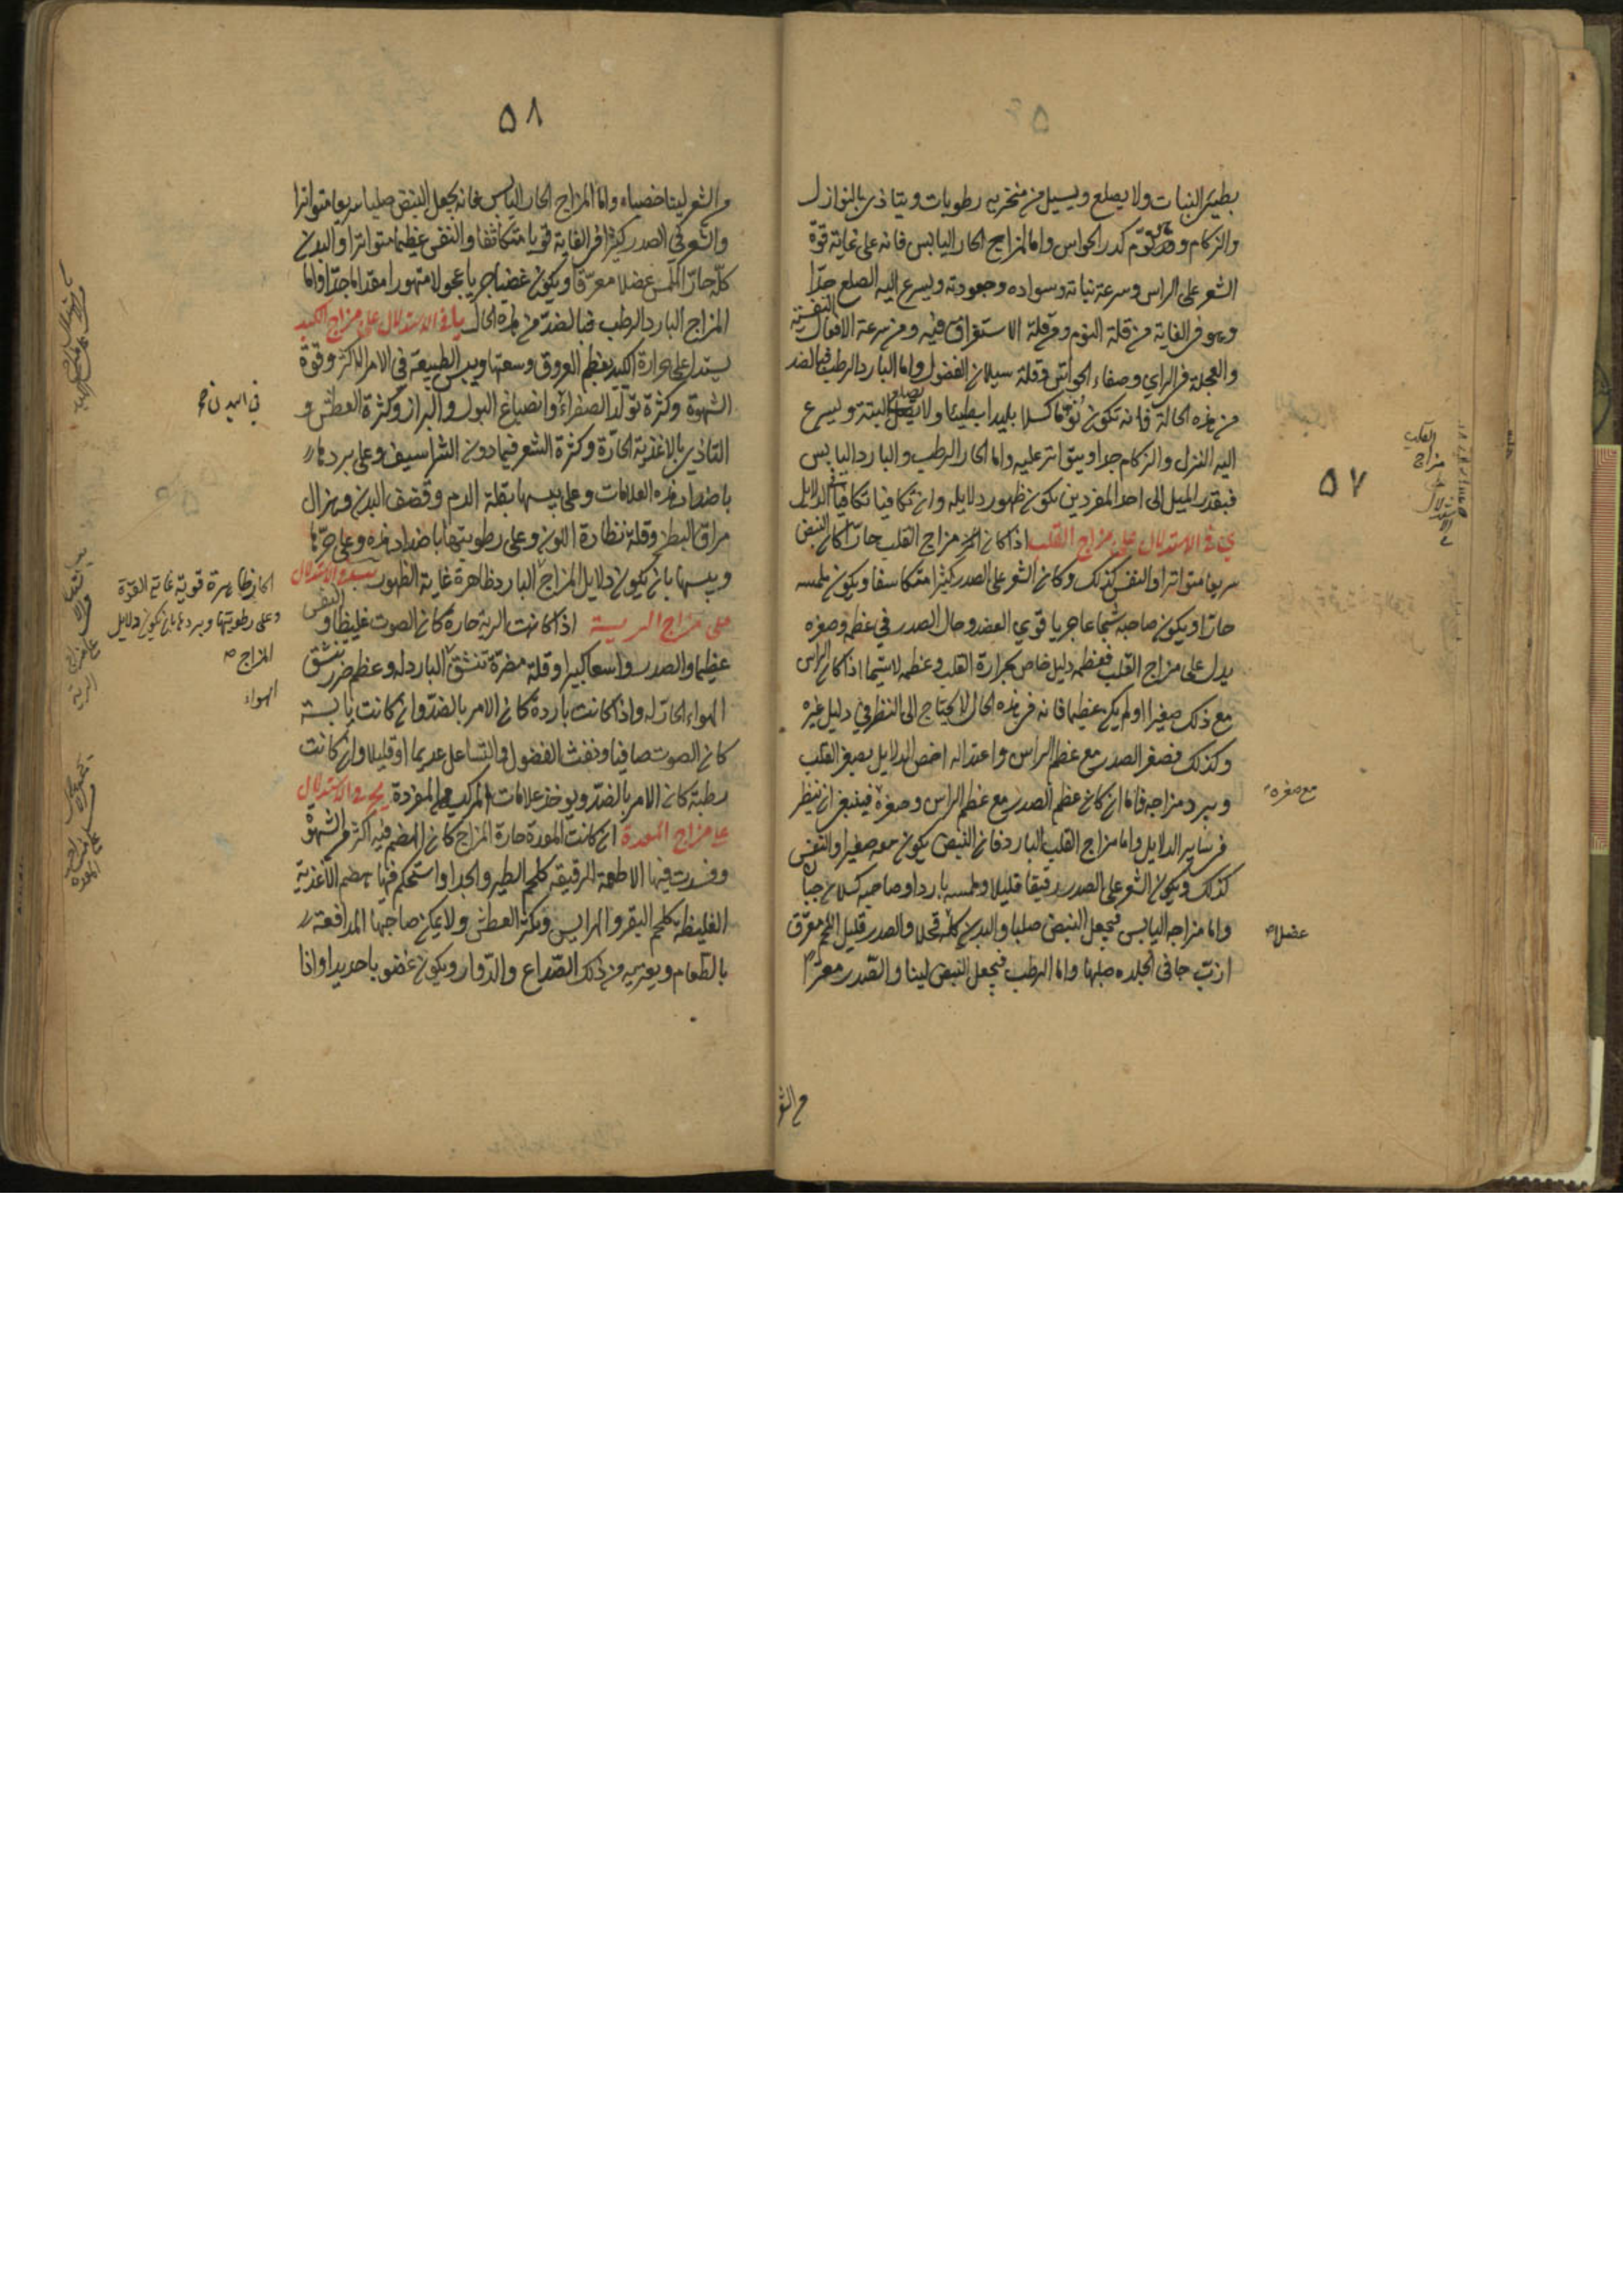 ٥٧
بطئ النبات ولا يصلع ويسيل من منخريه رطوبات ويتاذى بالنوازل
والزكام وهو نوّم كدر الحواس واما المزاج الحار اليابس فانه على غاية قوة
الشعر على الراس وسرعة نباته وسواده وجعودته ويسرع اليه الصلع جدّا
وهو في الغاية من قلة النوم ومن قلة الاستغراق فيه ومن سرعة الافعال النفسية
والعجلة في الراي وصفاء الحواس وقلة سيلان الفضول واما البارد الرطب فبالضد
من هذه الحالة فانه تكون نؤما كسلا بليدا بطيئا ولا يصلع البتة ويسرع
اليه النزل والزكام جدا ويتواتر عليه واما الحار الرطب والبارد اليابس
فبقدر الميل الى احد المفردين يكون ظهور دلايله وان تكافيا تكافيا الدلايل
ى في الاستدلال على مزاج القلب اذا كان مزاج القلب حارا كان النبض
سريعا متواترا والنفس كذلك وكان الشعر على الصدر كثيرا متكاسفا ويكون ملمسه
حارا ويكون صاحبه شجاعا جريا قوي الغضب وحال الصدر في عظمه وصغره
يدل على مزاج القلب فعظمه دليل خاص بحرارة القلب وعظمه لا سيّما اذا كان الراس
مع ذلك صغيرا او لم يكن عظيما فانه في هذه الحال لا يحتاج الى النظر في دليل غيره
وكذلك فصغر الصدر مع عظم الراس واعتداله اخص الدلايل بصغر القلب
وببرد مزاجه فاما ان كان عظم الصدر مع عظم الراس وصغره فينبغي ان ينظر
مع صغره
في ساير الدلايل واما مزاج القلب البارد فان النبض يكون معه صغيرا والنفس
كذلك ويكون الشعر على الصدر رقيقا قليلا وملمسه باردا وصاحبه كسلان جبان
واما مزاجه اليابس فيجعل النبض صلبا والبدن كله قحلا والصدر قليل اللحم معرّق
عضلاء
ازبّ جافى الجلده صلبها واما الرطب فيجعل النبض لينا والصدر معرّا
من الشعر
٥٨
من الشعر لينا خصباء واما المزاج الحار اليابس فانه يجعل النبض صلبا سريعا متواترا
والشعر في الصدر كثيرا في الغاية قويا متكاثفا والنفس عظيما متواترا والبدن
كلّه حارّ الملمس عضلا معرّقا ويكون غضبا جريا عجولا متهورا مقداما جدّا فاما
المزاج البارد الرطب فبالضدّ من هذه الحال يا في الاستدلال على مزاج الكبد
يستدل على حرارة الكبد بعظم العروق وسعتها ويبس الطبيعة في الامر الاكثر وقوة
في البدن
الشهوة وكثرة تولّد الصفراء وانصباغ البول والبراز وكثرة العطش و
التاذى بالاغذية الحارّة وكثرة الشعر فيما دون الشراسيف وعلى بردها
باضداد هذه العلامات وعلى يبسها بقلة الدم وقضف البدن وهزال
مراق البطن وقلة نظارة اللون وعلى رطوبتها باضداد هذه وعلى حرّها
ويبسها بان يكون دلايل المزاج البارد ظاهرة غاية الظهور يب في الاستدلال
الحار ظاهرة قوية غاية القوّة
وعلى رطوبتها وبردها بان يكون دلايل
المزاج
على مزاج الرية اذا كانت الرية حارة كان الصوت غليظا والنفس
عظيما والصدر واسعا كبيرا وقلة مضرّة تنشق البارد له وعظم ضرر تنشق
الهواء
الهواء الحارّ له واذا كانت باردة كان الامر بالضدّ وان كانت يابسة
كان الصوت صافيا ونفث الفضول والتساعل عديما او قليلا وان كانت
رطبة كان الامر بالضدّ ويوخذ علامات المركب من المفردة يج في الاستدلال
على مزاج المعدة ان كانت المعدة حارة المزاج كان الهضم فيه اكثر من الشهوة
وفسدت فيها الاطعمة الرقيقه كلحم الطير والجدا واستحكم فيها هضم الاغذية
الغليظة كلحم البقر والهرايس وتكثر العطش ولا يمكن صاحبها المدافعة
بالطعام ويعتريه من ذلك الصّداع والدّوار ويكون غضوبا حديدا واذا